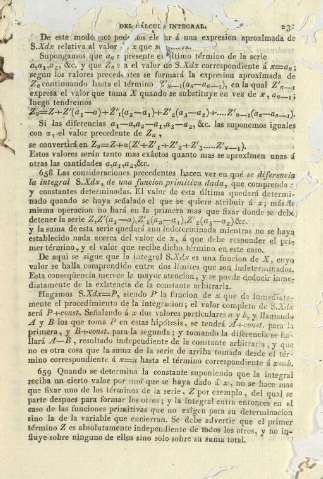 DEL CÁLCULO INTEGRAL. 23
De este modo que podemos elevar á una expresion aproximada de
S.Xdx relativa al valor x que
Supongamos que aₙ represente el último termino de la serie
a,a₁,a₂, &c. y que Zₙ el valor de S.Xdx correspondiente á x=aₙ;
segun los valores precedentes se formará la expresion aproximada de
Zₙ continuando hasta el término Z'ₙ₋₁(aₙ—aₙ₋₁), en la qual Z'ₙ₋₁
expresa el valor que toma X quando se substituye en vez de x, aₙ₋₁;
luego tendremos
Zₙ=Z+Z'(a₁—a)+Z'₁(a₂—a₁)+Z'₂(a₃—a₂)+....Z'ₙ₋₁(aₙ—aₙ₋₁).
Si las diferencias a₁—a,a₂—a₁,a₃—a₂, &c. las suponemos iguales
con α, el valor precedente de Zₙ,
se convertirá en Zₙ=Z+α(Z'+Z'₁+Z'₂+Z'₃.....Z'ₙ₋₁).
Estos valores serán tanto mas exâctos quanto mas se aproximen unas á
otras las cantidades a,a₁,a₂,&c.
658 Las consideraciones precedentes hacen ver en qué se diferencia
la integral S.Xdx, de una funcion primitiva dada, que comprenda x
y constantes determinadas. El valor de esta última quedará determi-
nado quando se haya señalado el que se quiere atribuir á x; mas la
misma operacion no hará en la primera mas que fixar donde se debe
detener la serie Z,Z'(a₁—a),Z'₁(a₂—a₁),Z'₂(a₃—a₂)&c.
y la suma de esta serie quedará aun indeterminada mientras no se haya
establecido nada acerca del valor de x, á que debe responder el pri-
mer término, y el valor que recibe dicho término en este caso.
De aqui se sigue que la integral S.Xdx es una funcion de X, cuyo
valor se halla comprendido entre dos límites que son indeterminados.
Esta conseqüencia merece la mayor atencion, y se puede deducir inme-
diatamente de la existencia de la constante arbitraria.
Hagamos S.Xdx=P, siendo P la funcion de x que da inmediata-
mente el procedimiento de la integracion; el valor completo de S.Xdx
será P+const. Señalando á x dos valores particulares a y b, y llamando
A y B los que toma P en estas hipótesis, se tendrá A+const. para la
primera, y B+const. para la segunda; y tomando la diferencia se ha-
llará A—B, resultado independiente de la constante arbitraria, y que
no es otra cosa que la suma de la serie de arriba tomada desde el tér-
mino correspondiente á x=a hasta el término correspondiente á x=b.
659 Quando se determina la constante suponiendo que la integral
reciba un cierto valor por uno que se haya dado á x, no se hace mas
que fixar uno de los términos de la serie, Z por exemplo, del qual se
parte despues para formar los otros; y la integral entra entonces en el
caso de las funciones primitivas que no exîgen para su determinacion
sino la de la variable que encierran. Se debe advertir que el primer
término Z es absolutamente independiente de todos los otros, y no in-
fluye sobre ninguno de ellos sino solo sobre su suma total.